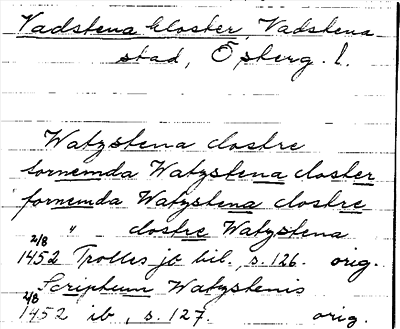 Vadstena kloster, Vadstena
stad, Österg. l.
Watzstena clostre
fornemda Watzstena closter
fornemda Watzstena clostre
" clostre Watzstena
2/8 1452 Trolles jb bil., s. 126. orig.
Scriptum Watzstenis
2/8 1452 ib, s. 127. orig.